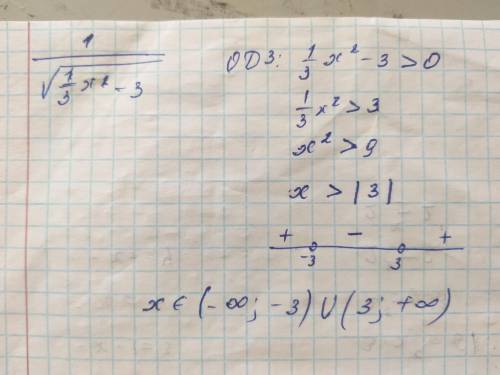 1/√(1/3 x² - 3)
ОДЗ: 1/3 x² - 3 > 0
1/3 x² > 3
x² > 9
x > |3|
+ - +
-3 3
x ∈ (-∞; -3) ∪ (3; +∞)